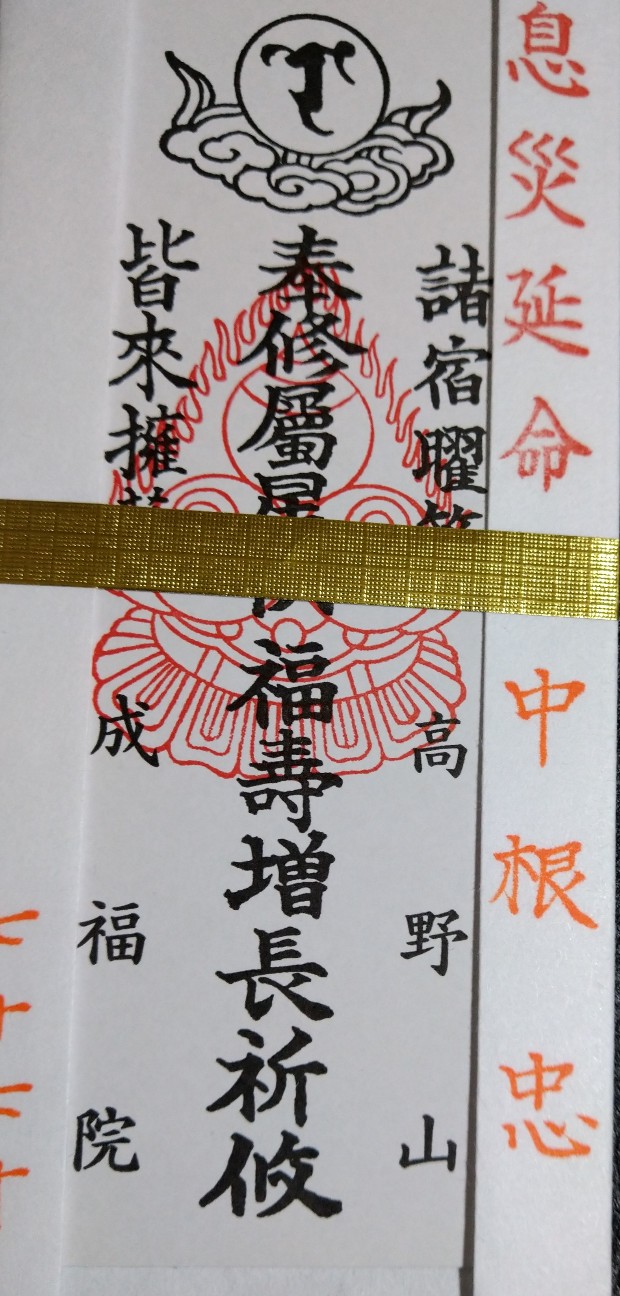 息災延命 中根忠
諸宿曜
奉修屬星
福壽増長祈攸
皆來擁
高野山
成福院